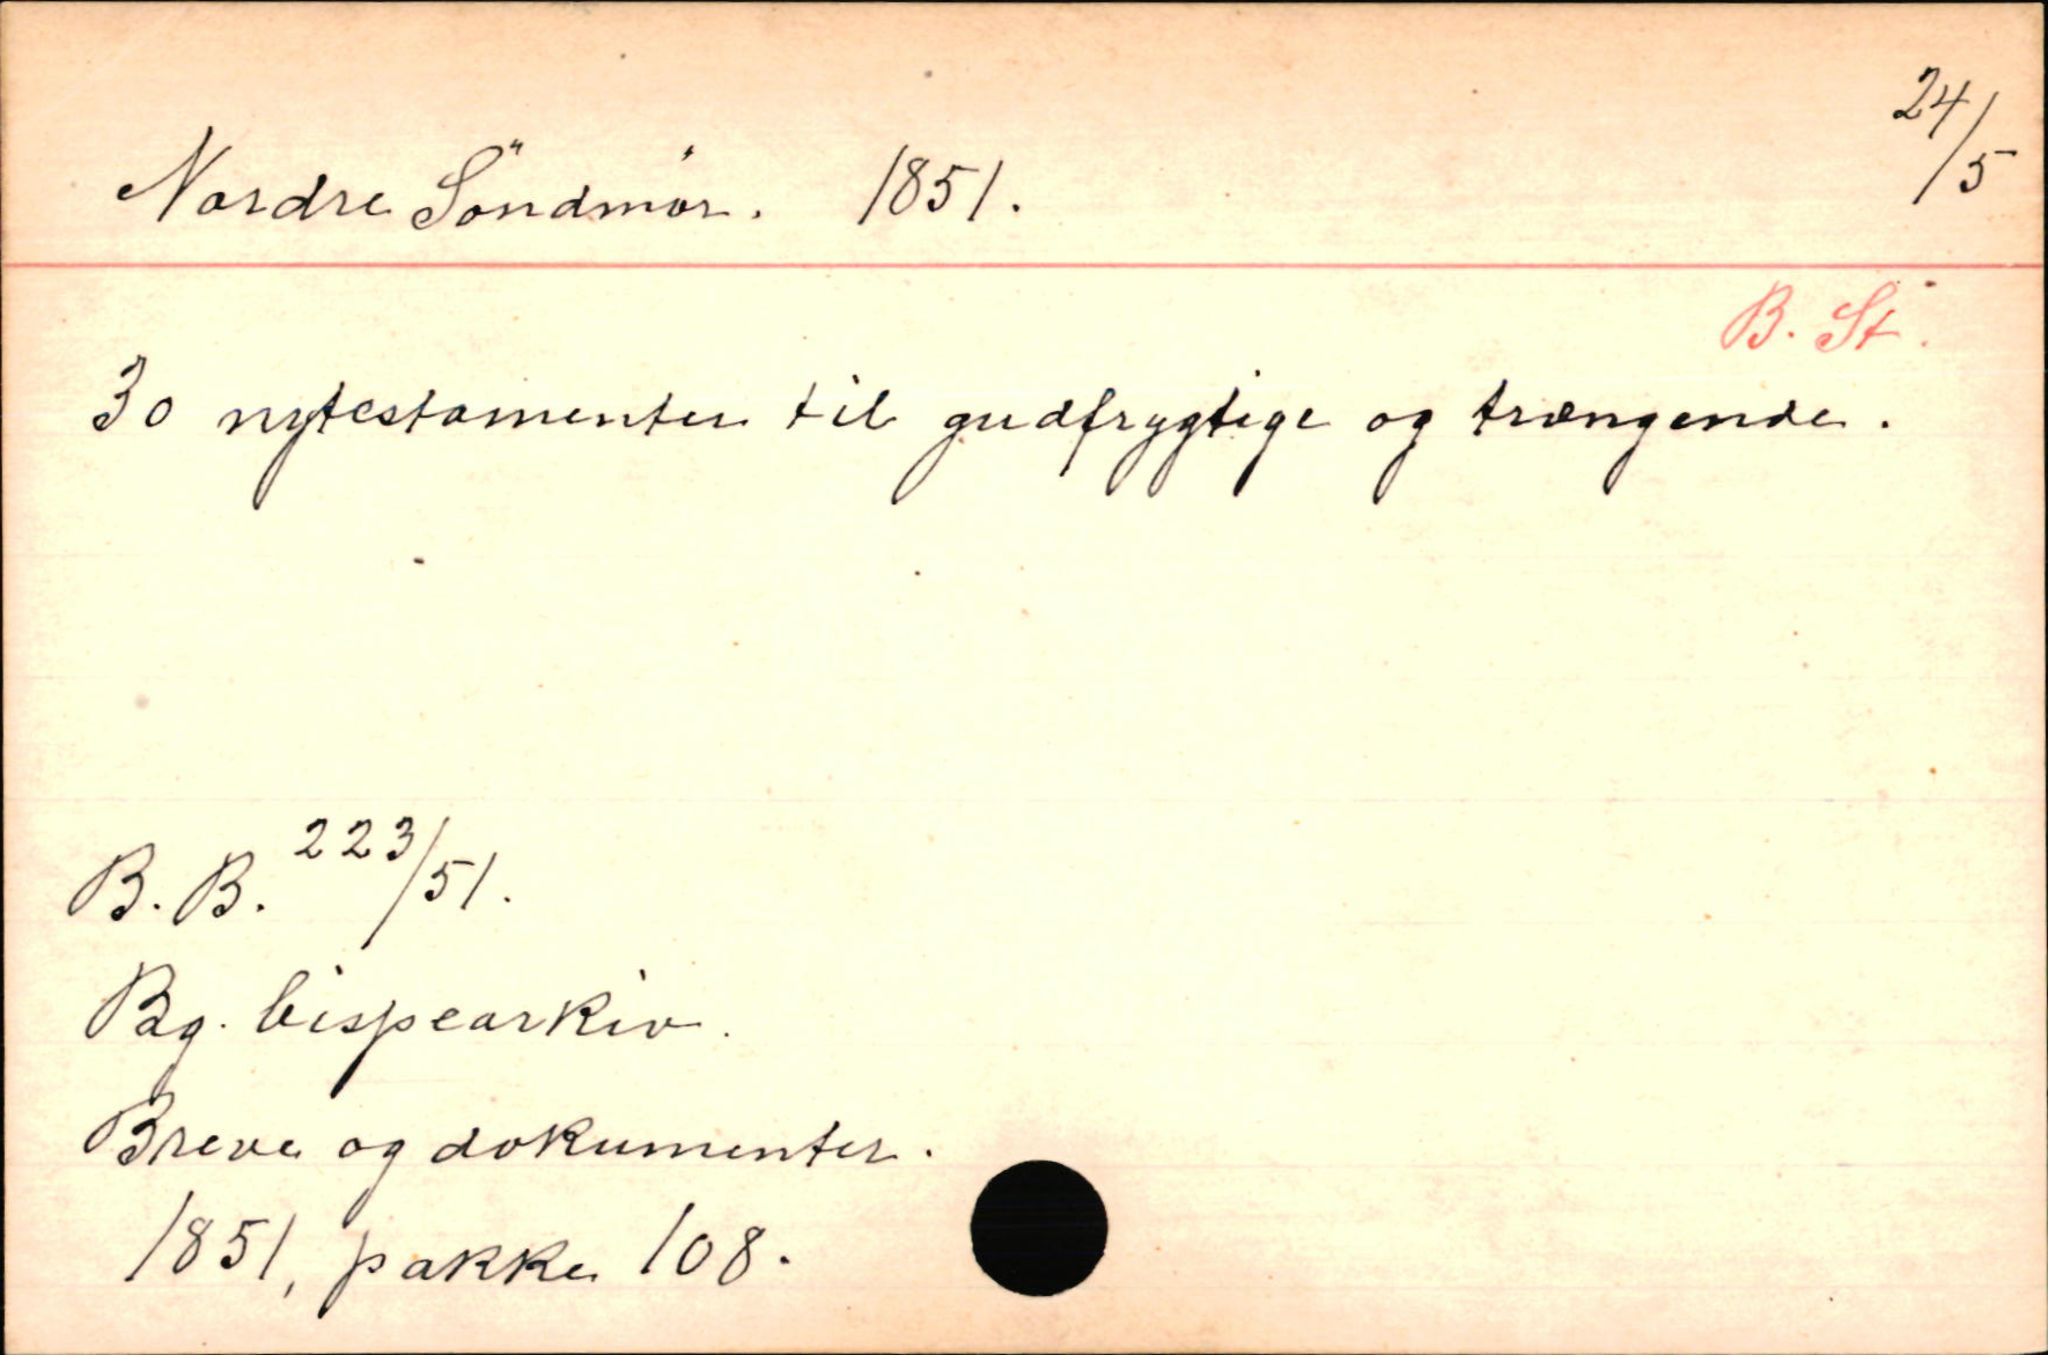 24/5
Nordre Söndmör. 1851.
B. St.
30 nytestamenter til gudfrygtige og trængende.
B. B. 223/51.
Bg. bispearkiv.
Breve og dokumenter.
1851, pakke 108.